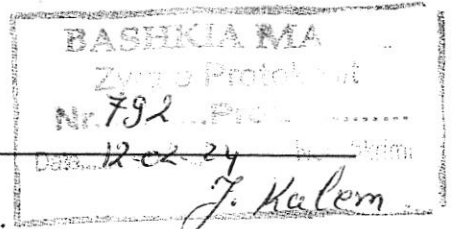 BASHKIA MA
Zyra e Protokollit
Nr. 792 Prot.
Data 12-02-24
J. Kalem